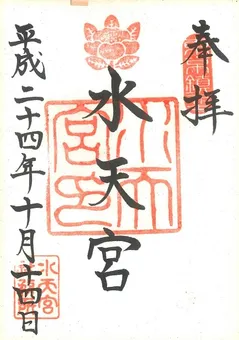 奉拝
水天宮
水天
宮印
平成二十四年十月十四日
水天宮